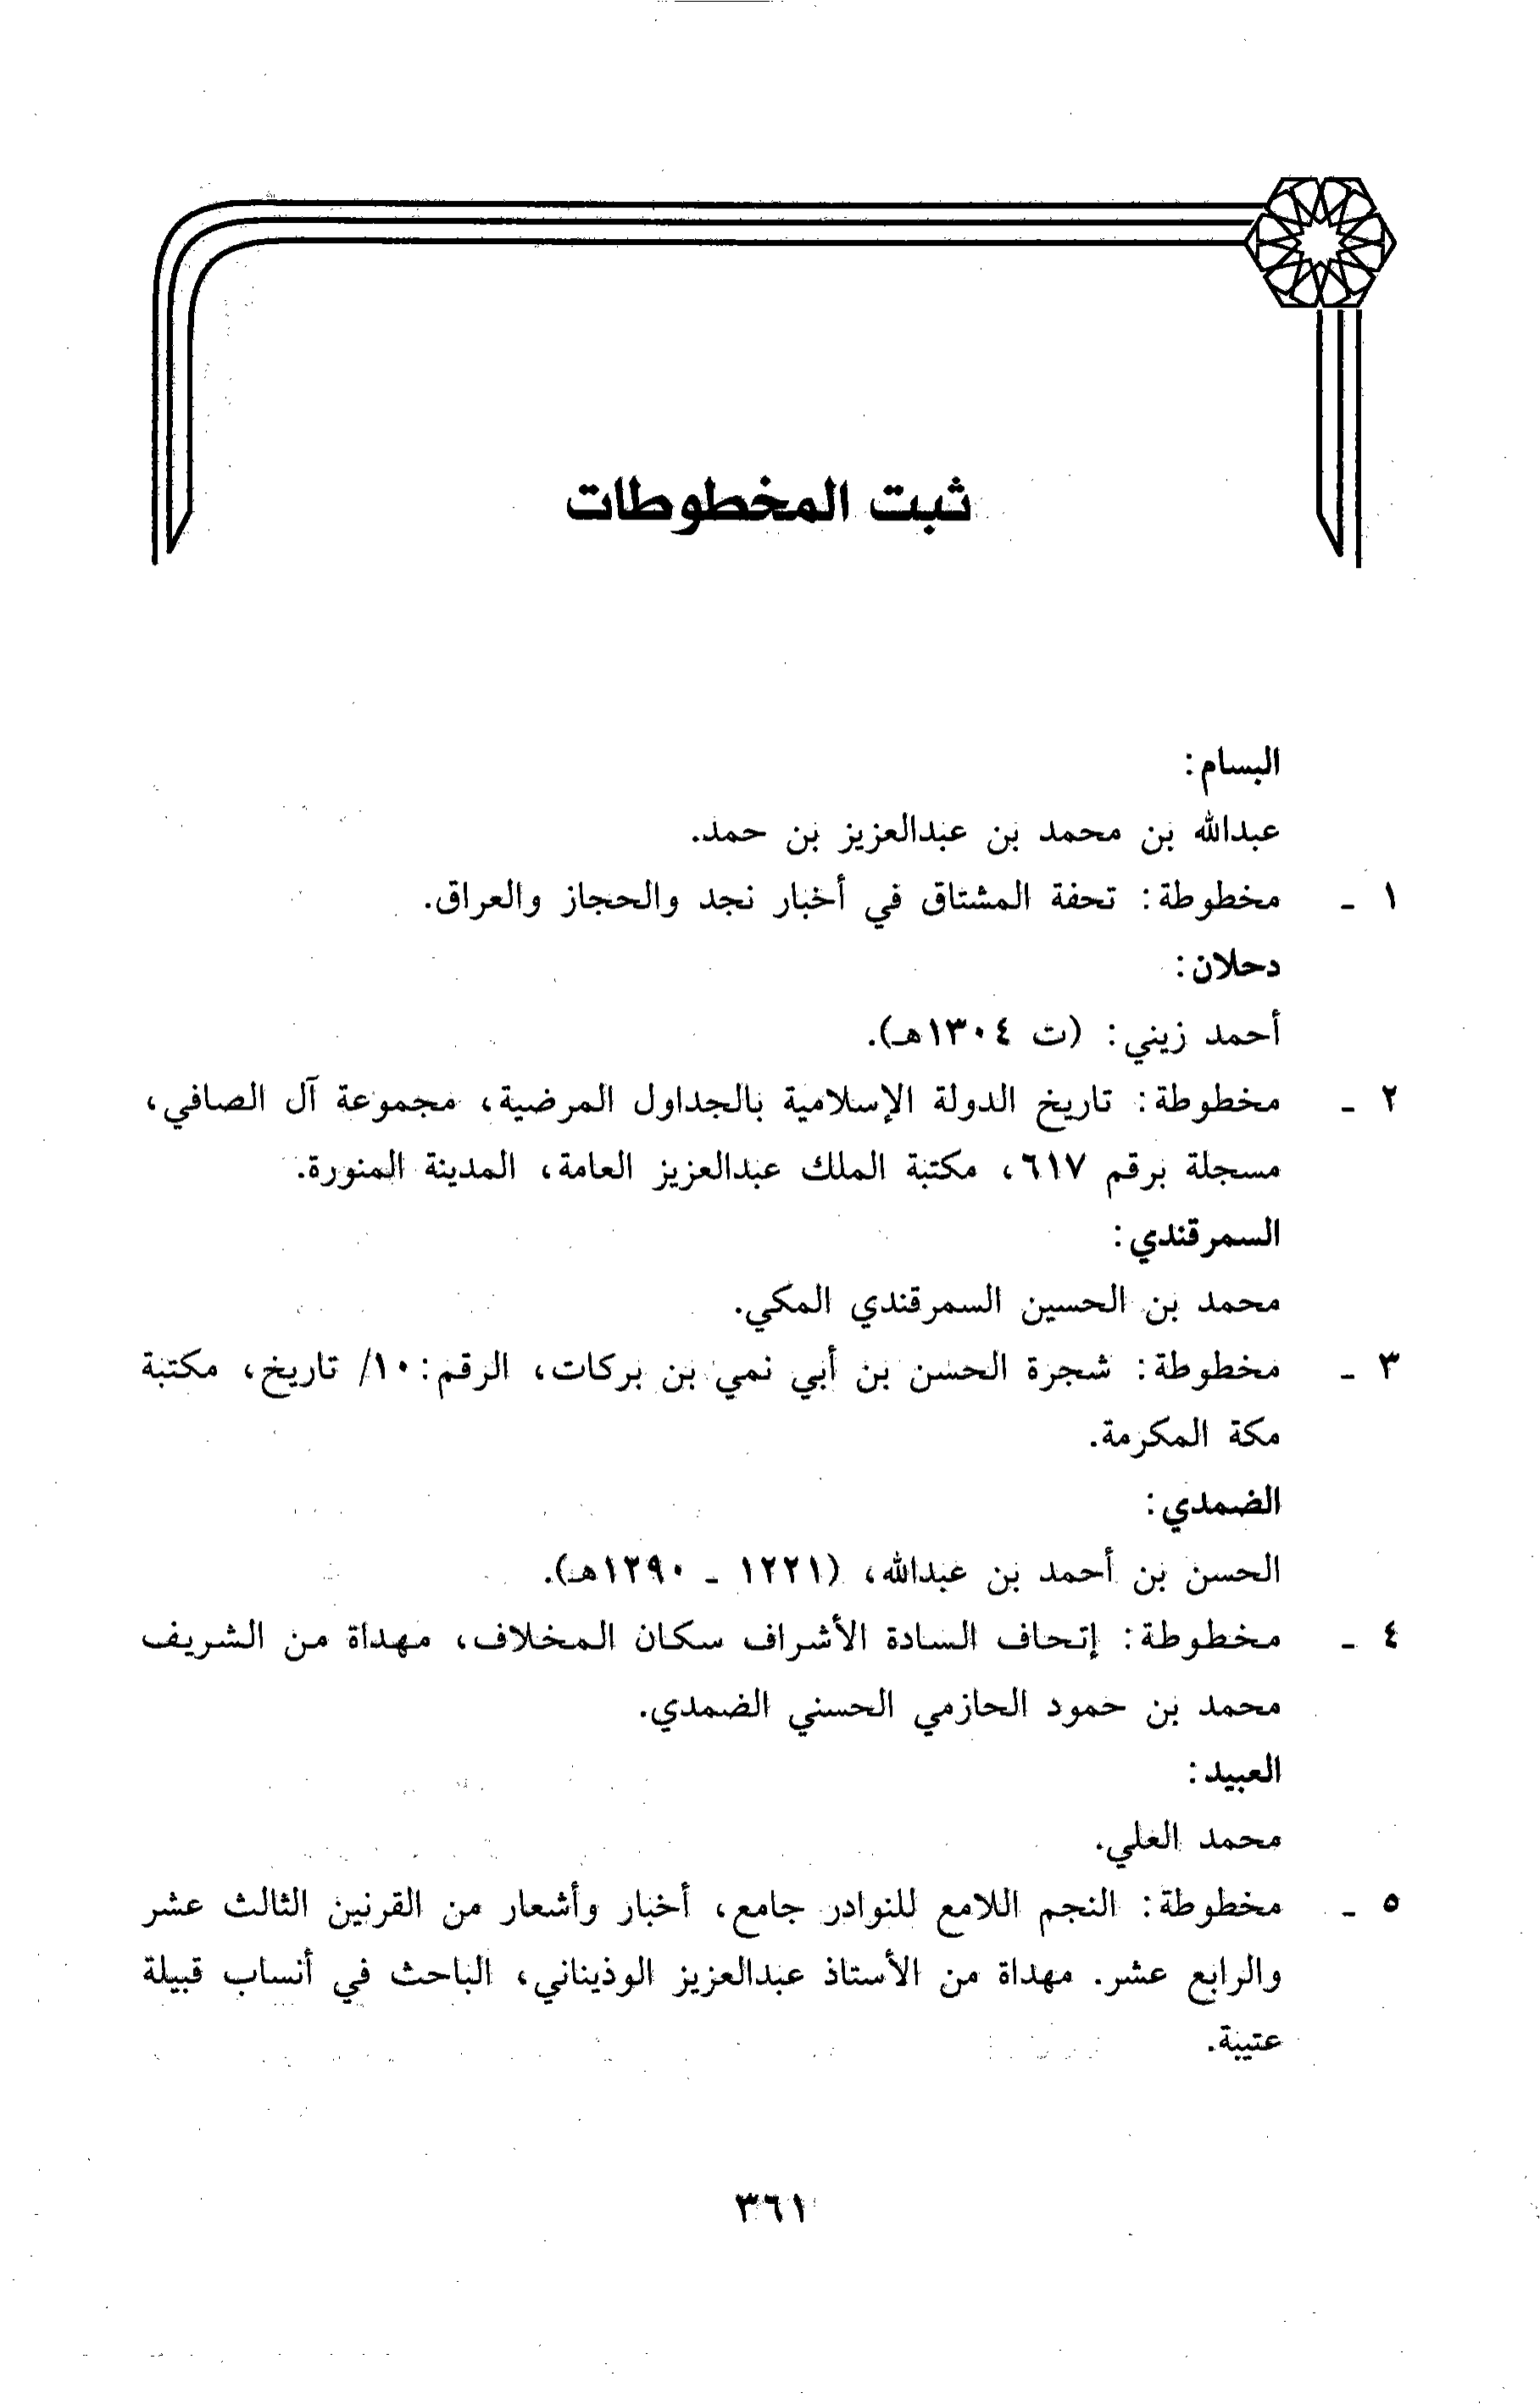 ثبت المخطوطات
البسام:
عبدالله بن محمد بن عبدالعزيز بن حمد.
١ - مخطوطة: تحفة المشتاق في أخبار نجد والحجاز والعراق.
دحلان:
أحمد زيني: (ت ١٣٠٤هـ).
٢ - مخطوطة: تاريخ الدولة الإسلامية بالجداول المرضية، مجموعة آل الصافي،
مسجلة برقم ٦١٧، مكتبة الملك عبدالعزيز العامة، المدينة المنورة.
السمرقندي:
محمد بن الحسين السمرقندي المكي.
٣ - مخطوطة: شجرة الحسن بن أبي نمي بن بركات، الرقم: ١٠/ تاريخ، مكتبة
مكة المكرمة.
الضمدي:
الحسن بن أحمد بن عبدالله، (١٢٢١ - ١٢٩٠هـ).
٤ - مخطوطة: إتحاف السادة الأشراف سكان المخلاف، مهداة من الشريف
محمد بن حمود الحازمي الحسني الضمدي.
العبيد:
محمد العلي.
٥ - مخطوطة: النجم اللامع للنوادر جامع، أخبار وأشعار من القرنين الثالث عشر
والرابع عشر. مهداة من الأستاذ عبدالعزيز الوذيناني، الباحث في أنساب قبيلة
عتيبة.
٣٦١